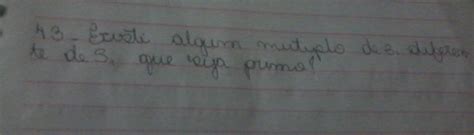 43 - Existe algum mutiplo de 3. diferen
te de 3, que seja primo?